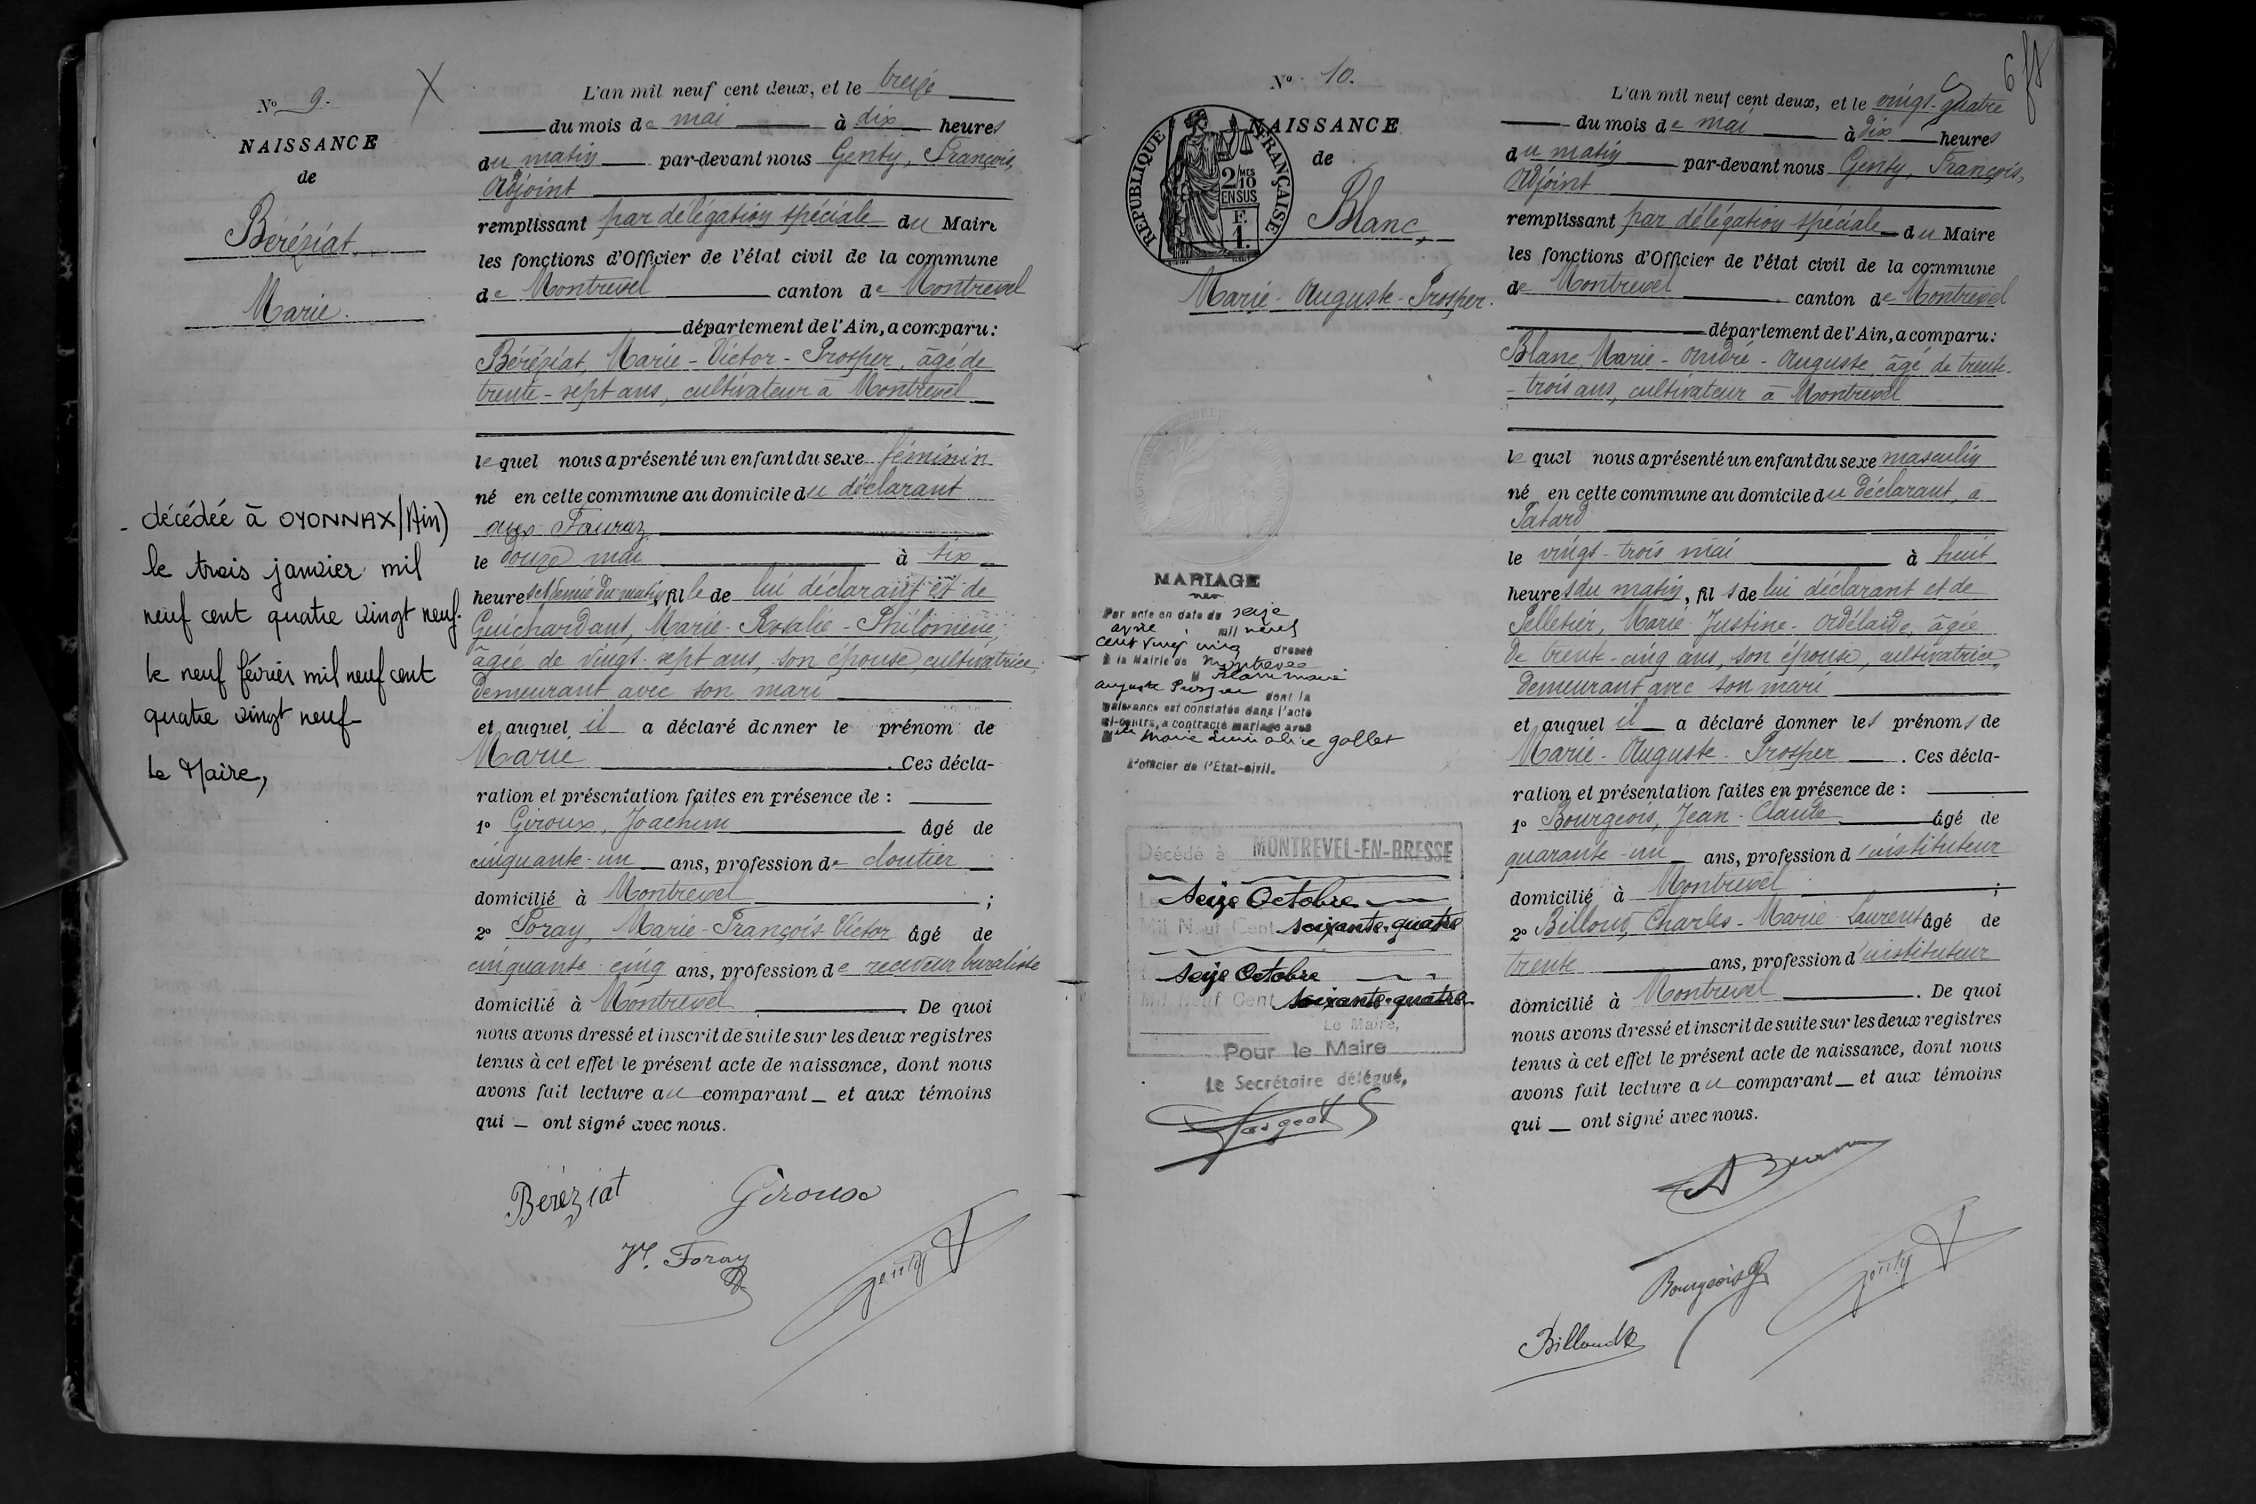 N° 9.
NAISSANCE
de
Béréziat
Marie.
décédée à OYONNAX (Ain)
le trois janvier mil
neuf cent quatre vingt neuf.
le neuf février mil neuf cent
quatre vingt neuf
Le Maire,
L'an mil neuf cent deux, et le treize
du mois de mai à dix heures
du matin par-devant nous Genty, François,
adjoint
remplissant par délégation spéciale du Maire
les fonctions d'Officier de l'état civil de la commune
de Montrevel canton de Montrevel
département de l'Ain, a comparu:
Béréziat, Marie-Victor-Prosper, âgé de
trente-sept ans, cultivateur à Montrevel
lequel nous a présenté un enfant du sexe féminin
né en cette commune au domicile du déclarant
aux Fauraz
le douze mai à six
heures et demie du matin, fille de lui déclarant et de
Guichardant, Marie-Rosalie-Philomène,
âgée de vingt-sept ans, son épouse, cultivatrice,
demeurant avec son mari
et auquel il a déclaré donner le prénom de
Marie . Ces décla-
ration et présentation faites en présence de :
1° Giroux, Joachim âgé de
cinquante-un ans, profession de cloutier
domicilié à Montrevel ;
2° Foray, Marie-François-Victor âgé de
cinquante-cinq ans, profession de receveur buraliste
domicilié à Montrevel . De quoi
nous avons dressé et inscrit de suite sur les deux registres
tenus à cet effet le présent acte de naissance, dont nous
avons fait lecture au comparant et aux témoins
qui ont signé avec nous.
Béréziat Giroux
Vr. Foray
Genty
N° 10.
NAISSANCE
de
REPUBLIQUE FRANÇAISE
2/10 MES
EN SUS
F.
1.
Blanc,
Marie-Auguste-Prosper.
MARIAGE
Par acte en date du seize
mil neuf
cent vingt cinq dressé
à la Mairie de Montrevel
M Blanc Marie
Auguste Prosper dont la
naissance est constatée dans l'acte
ci-contre, a contracté mariage avec
Mlle Marie Alice Gallet
L'officier de l'Etat-civil.
Décédé à MONTREVEL-EN-BRESSE
Le seize Octobre
Mil Neuf Cent soixante-quatre
seize Octobre
Mil Neuf Cent soixante-quatre
Le Maire,
Pour le Maire
Le Secrétaire délégué,
6
L'an mil neuf cent deux, et le vingt-quatre
du mois de mai à dix heures
du matin par-devant nous Genty, François,
adjoint
remplissant par délégation spéciale du Maire
les fonctions d'Officier de l'état civil de la commune
de Montrevel canton de Montrevel
département de l'Ain, a comparu:
Blanc, Marie-André-Auguste, âgé de trente-
-trois ans, cultivateur à Montrevel
lequel nous a présenté un enfant du sexe masculin
né en cette commune au domicile du déclarant, à
Patard
le vingt-trois mai à huit
heures du matin, fils de lui déclarant et de
Pelletier, Marie-Justine-Adélaïde, âgée
de trente-cinq ans, son épouse, cultivatrice,
demeurant avec son mari
et auquel il a déclaré donner les prénoms de
Marie-Auguste-Prosper . Ces décla-
ration et présentation faites en présence de :
1° Bourgeois, Jean-Claude âgé de
quarante-un ans, profession d'instituteur
domicilié à Montrevel ;
2° Billoud, Charles-Marie-Laurent âgé de
trente ans, profession d'instituteur
domicilié à Montrevel . De quoi
nous avons dressé et inscrit de suite sur les deux registres
tenus à cet effet le présent acte de naissance, dont nous
avons fait lecture au comparant et aux témoins
qui ont signé avec nous.
Bourgeois
Genty
Billoud